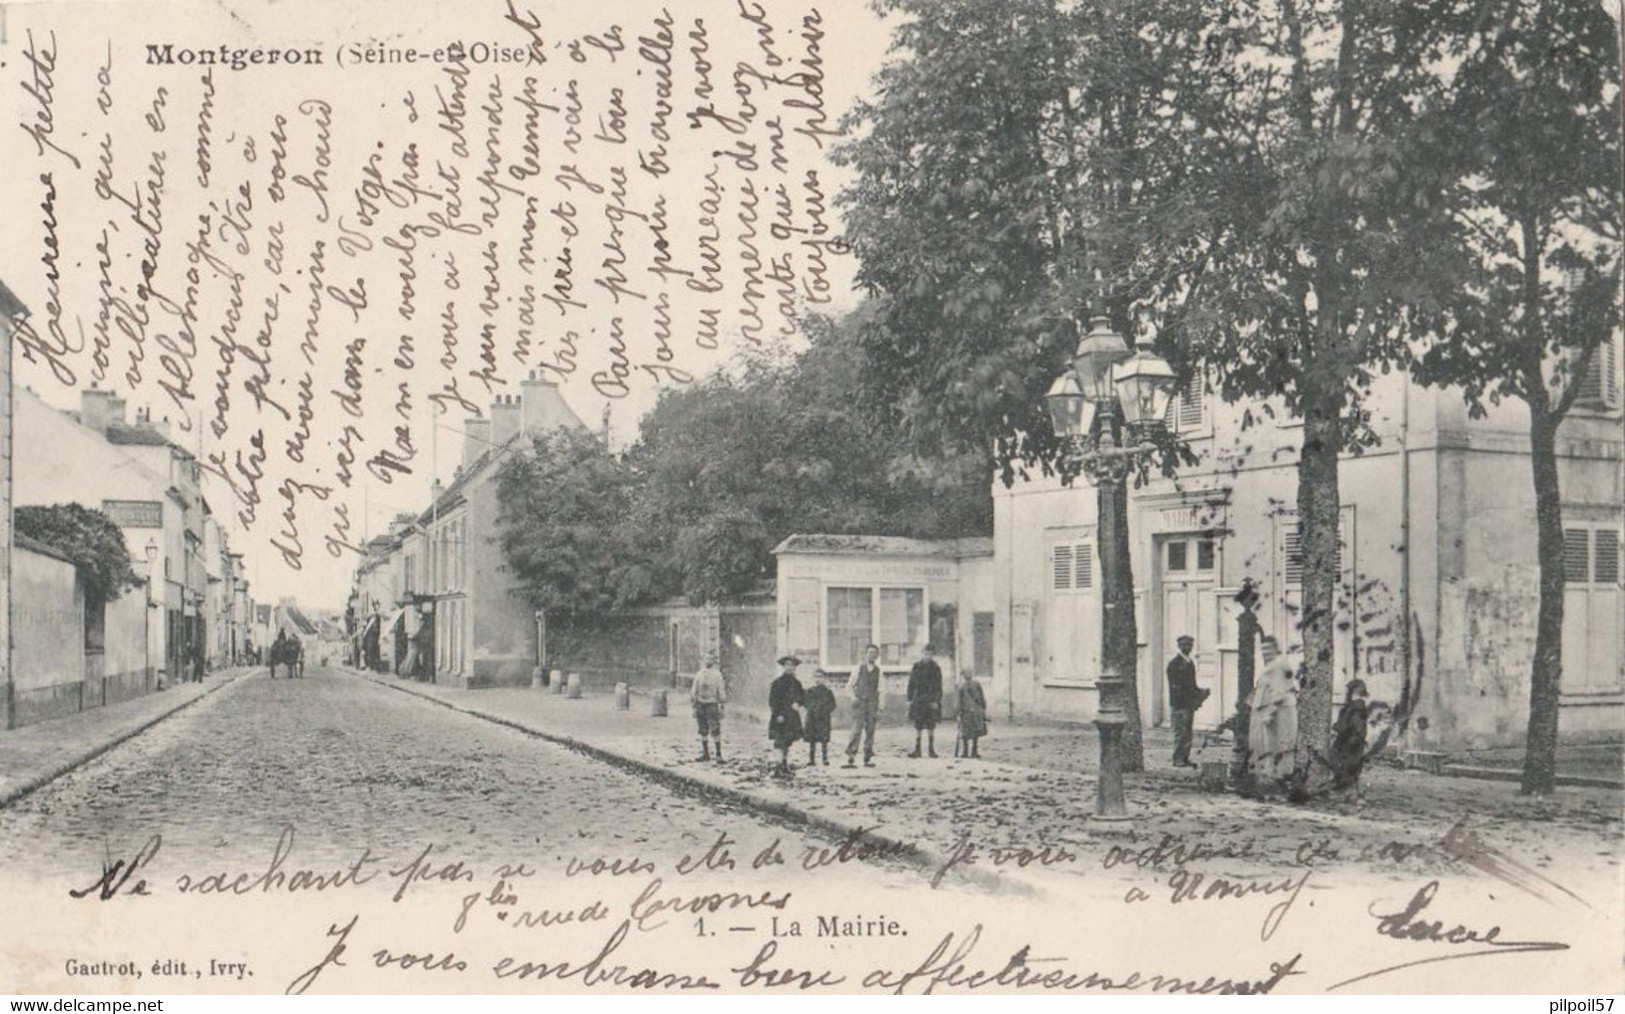 Montgeron (Seine-et-Oise)
Heureuse petite
cousine, qui va
villégiaturer en
Allemagne, comme
je voudrais être à
votre place, car vous
devez avoir moins chaud
que ici dans les Vosges.
Ne m'en voulez pas si
je vous ai fait attendre
pour vous répondre
mais mon temps est
très pris et je vais à
Paris presque tous les
jours pour travailler
au bureau, je vous
remercie de vos
cartes qui me font
toujours plaisir
MAIRIE
Ne sachant pas si vous etes de retour je vous adresse ces cartes
à Nancy.
8 bis rue de Crosnes
Lucie
1. — La Mairie.
Je vous embrasse bien affectueusement
Gautrot, édit., Ivry.
www.delcampe.net
pilpoil57